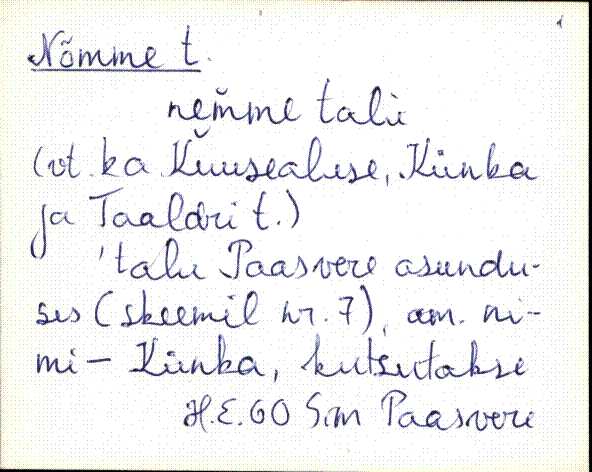 Nõmme t.
nem̆me talu
(vt. ka Kuusealuse, Künka
ja Taaldri t.)
'talu Paasvere asundu-
ses (skeemil nr. 7), am. ni-
mi – Künka, kutsutakse
H.E. 60 Sim Paasvere